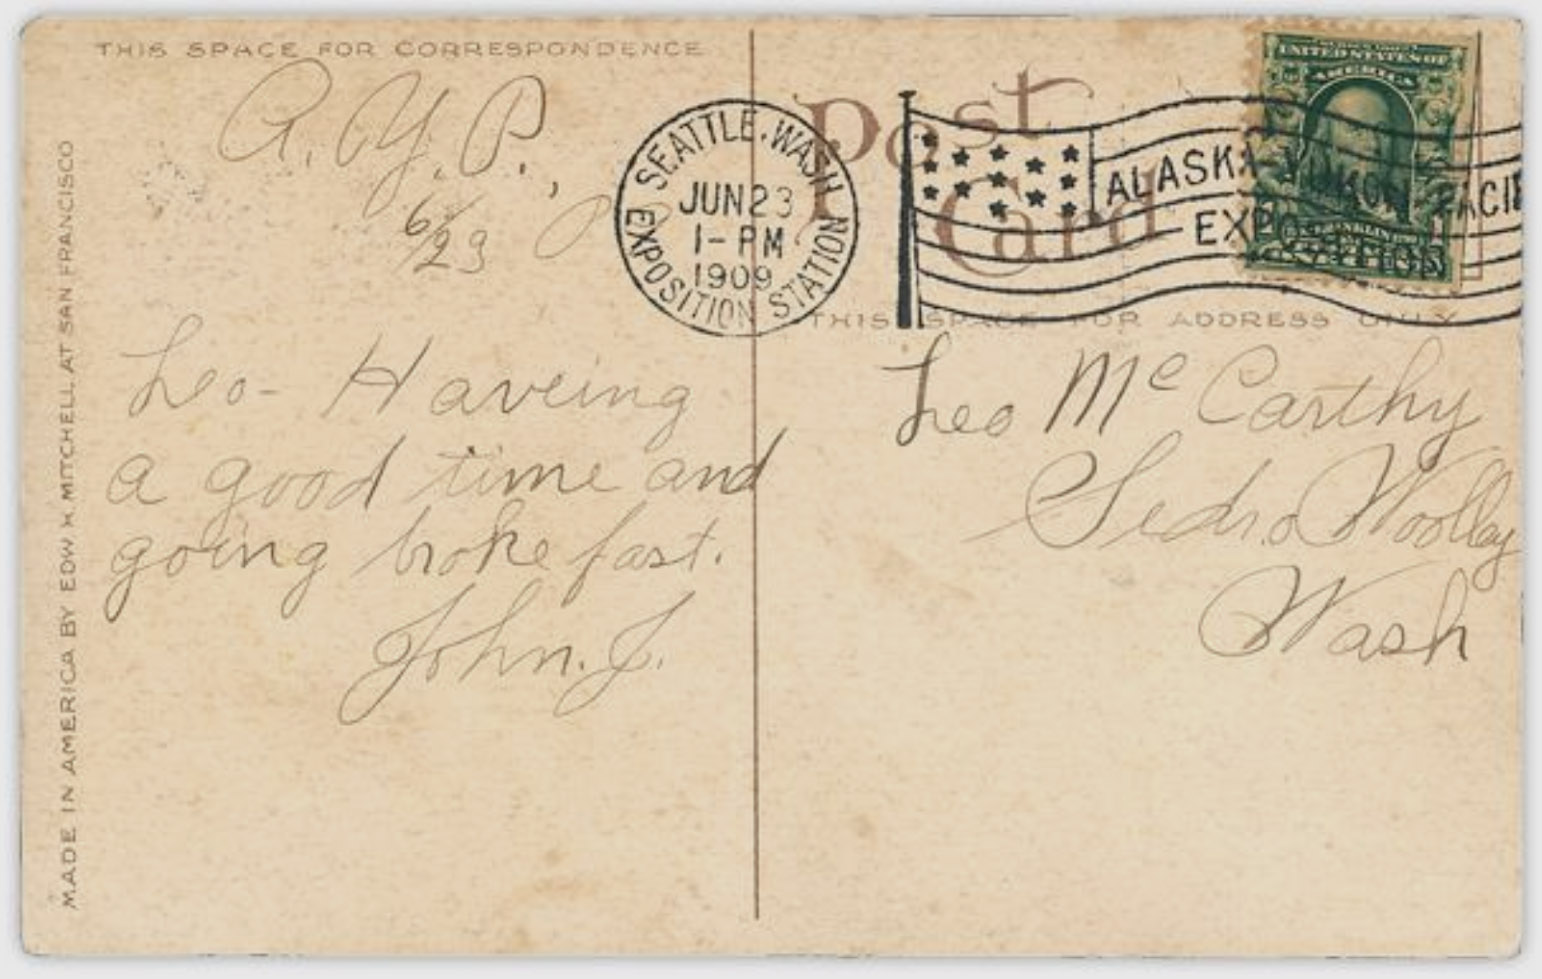 THIS SPACE FOR CORRESPONDENCE
A. Y. P.,
6/23
Leo- Haveing
a good time and
going broke fast.
John. J.
MADE IN AMERICA BY EDW H MITCHELL AT SAN FRANCISCO
SEATTLE, WASH
JUN 23
1 - PM
1909
EXPOSITION STATION
Post
Card
ALASKA-YUKON-PACIF
EXPOSITION
UNITED STATES OF
AMERICA
FRANKLIN
THIS SPACE FOR ADDRESS ONLY
Leo McCarthy
Sedro Woolley
Wash